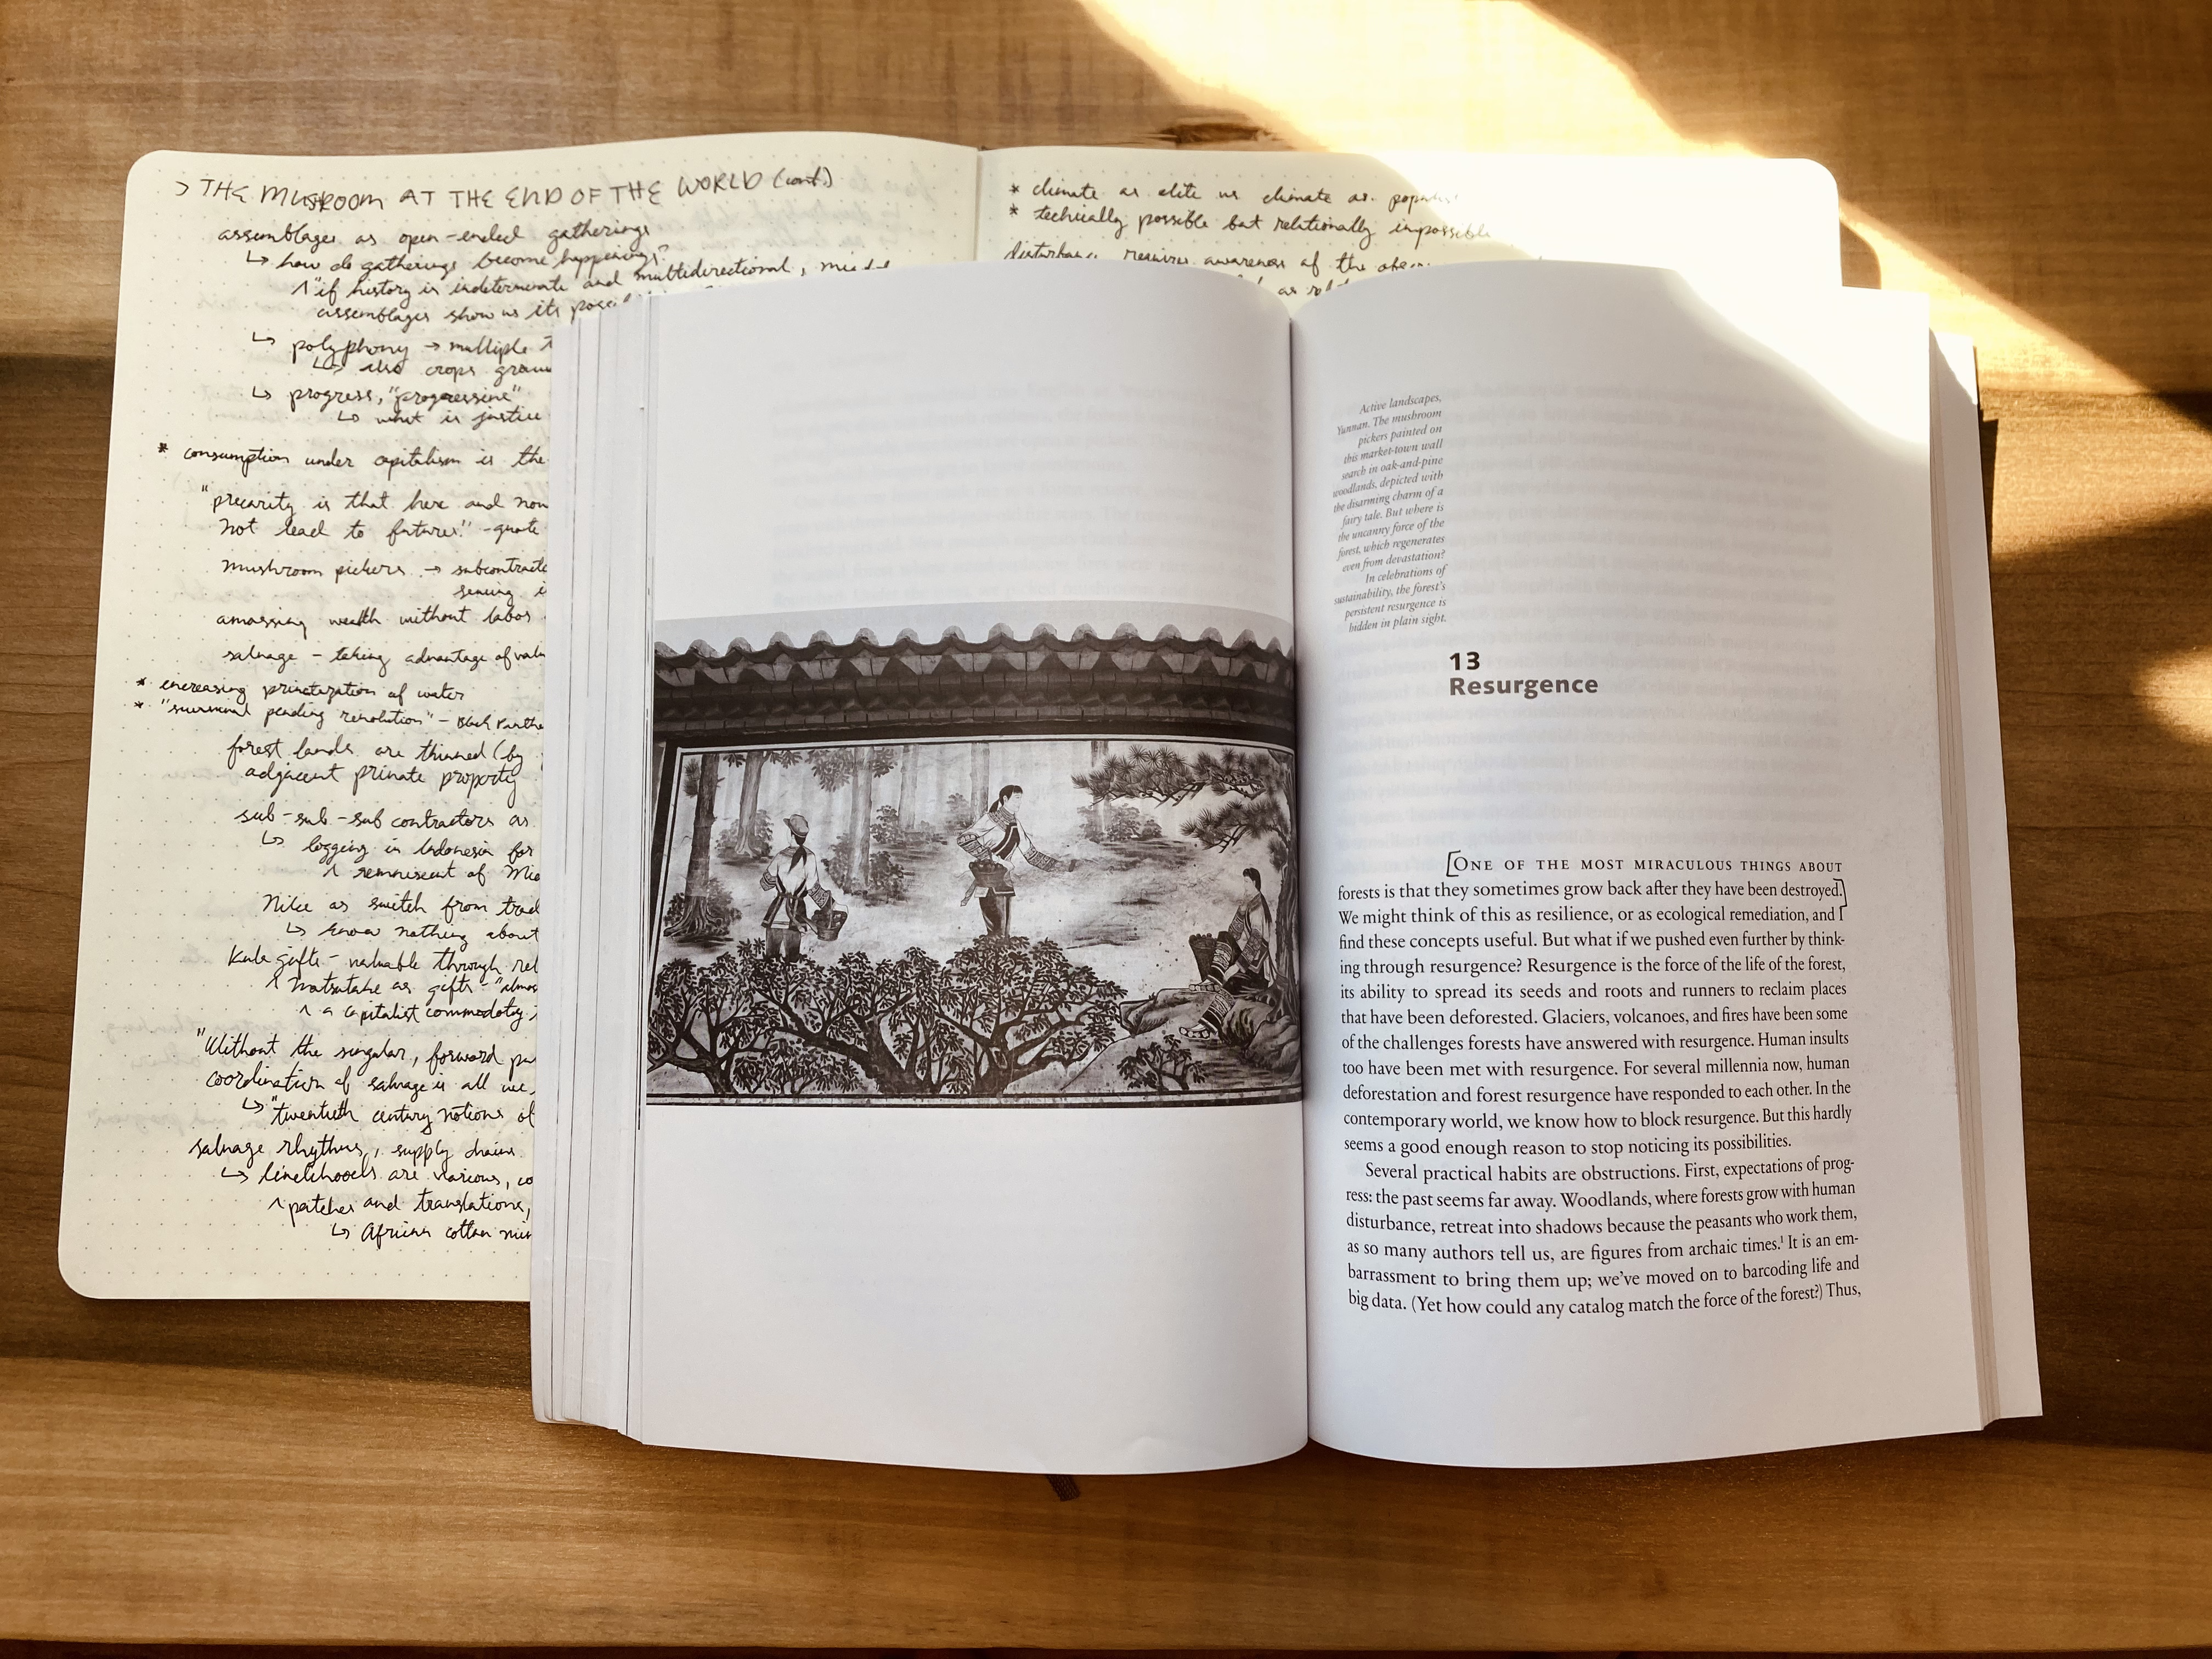 > THE MUSROOM AT THE END OF THE WORLD (cont.)
assemblages as open-ended gatherings
↳ how do gatherings become happenings?
^ "if history is indeterminate and multidirectional,
assemblages show us its
↳ polyphony → multiple
↳ also crops
↳ progress, "progressive"
↳ what is justice
* consumption under capitalism is the
"precarity is that here and now
not lead to futures" - quote
mushroom pickers →
amassing wealth without labor
salvage - taking advantage of
* increasing privatization of water
* "survival pending revolution" - Black
forest lands are thinned (by
adjacent private property
sub-sub-sub contractors as
↳ logging in Indonesia for
^ reminiscent of
Nike as switch from
↳ know nothing about
Kula gifts - valuable through
^ matsutake as gifts -
^ a capitalist commodity
"Without the singular, forward
coordination of salvage is all we
↳ "twentieth century notions of
salvage rhythms, supply chains
↳ livelihoods are various,
^ patches and translations,
↳ African cotton
* climate as elite vs climate as
* techically possible but relationally impossible
disturbance requires awareness of the
as
Active landscapes,
Yunnan. The mushroom
pickers painted on
this market-town wall
search in oak-and-pine
woodlands, depicted with
the disarming charm of a
fairy tale. But where is
the uncanny force of the
forest, which regenerates
even from devastation?
In celebrations of
sustainability, the forest's
persistent resurgence is
hidden in plain sight.
13
Resurgence
[ONE OF THE MOST MIRACULOUS THINGS ABOUT
forests is that they sometimes grow back after they have been destroyed.]
We might think of this as resilience, or as ecological remediation, and I
find these concepts useful. But what if we pushed even further by think-
ing through resurgence? Resurgence is the force of the life of the forest,
its ability to spread its seeds and roots and runners to reclaim places
that have been deforested. Glaciers, volcanoes, and fires have been some
of the challenges forests have answered with resurgence. Human insults
too have been met with resurgence. For several millennia now, human
deforestation and forest resurgence have responded to each other. In the
contemporary world, we know how to block resurgence. But this hardly
seems a good enough reason to stop noticing its possibilities.
Several practical habits are obstructions. First, expectations of prog-
ress: the past seems far away. Woodlands, where forests grow with human
disturbance, retreat into shadows because the peasants who work them,
as so many authors tell us, are figures from archaic times.¹ It is an em-
barrassment to bring them up; we've moved on to barcoding life and
big data. (Yet how could any catalog match the force of the forest?) Thus,